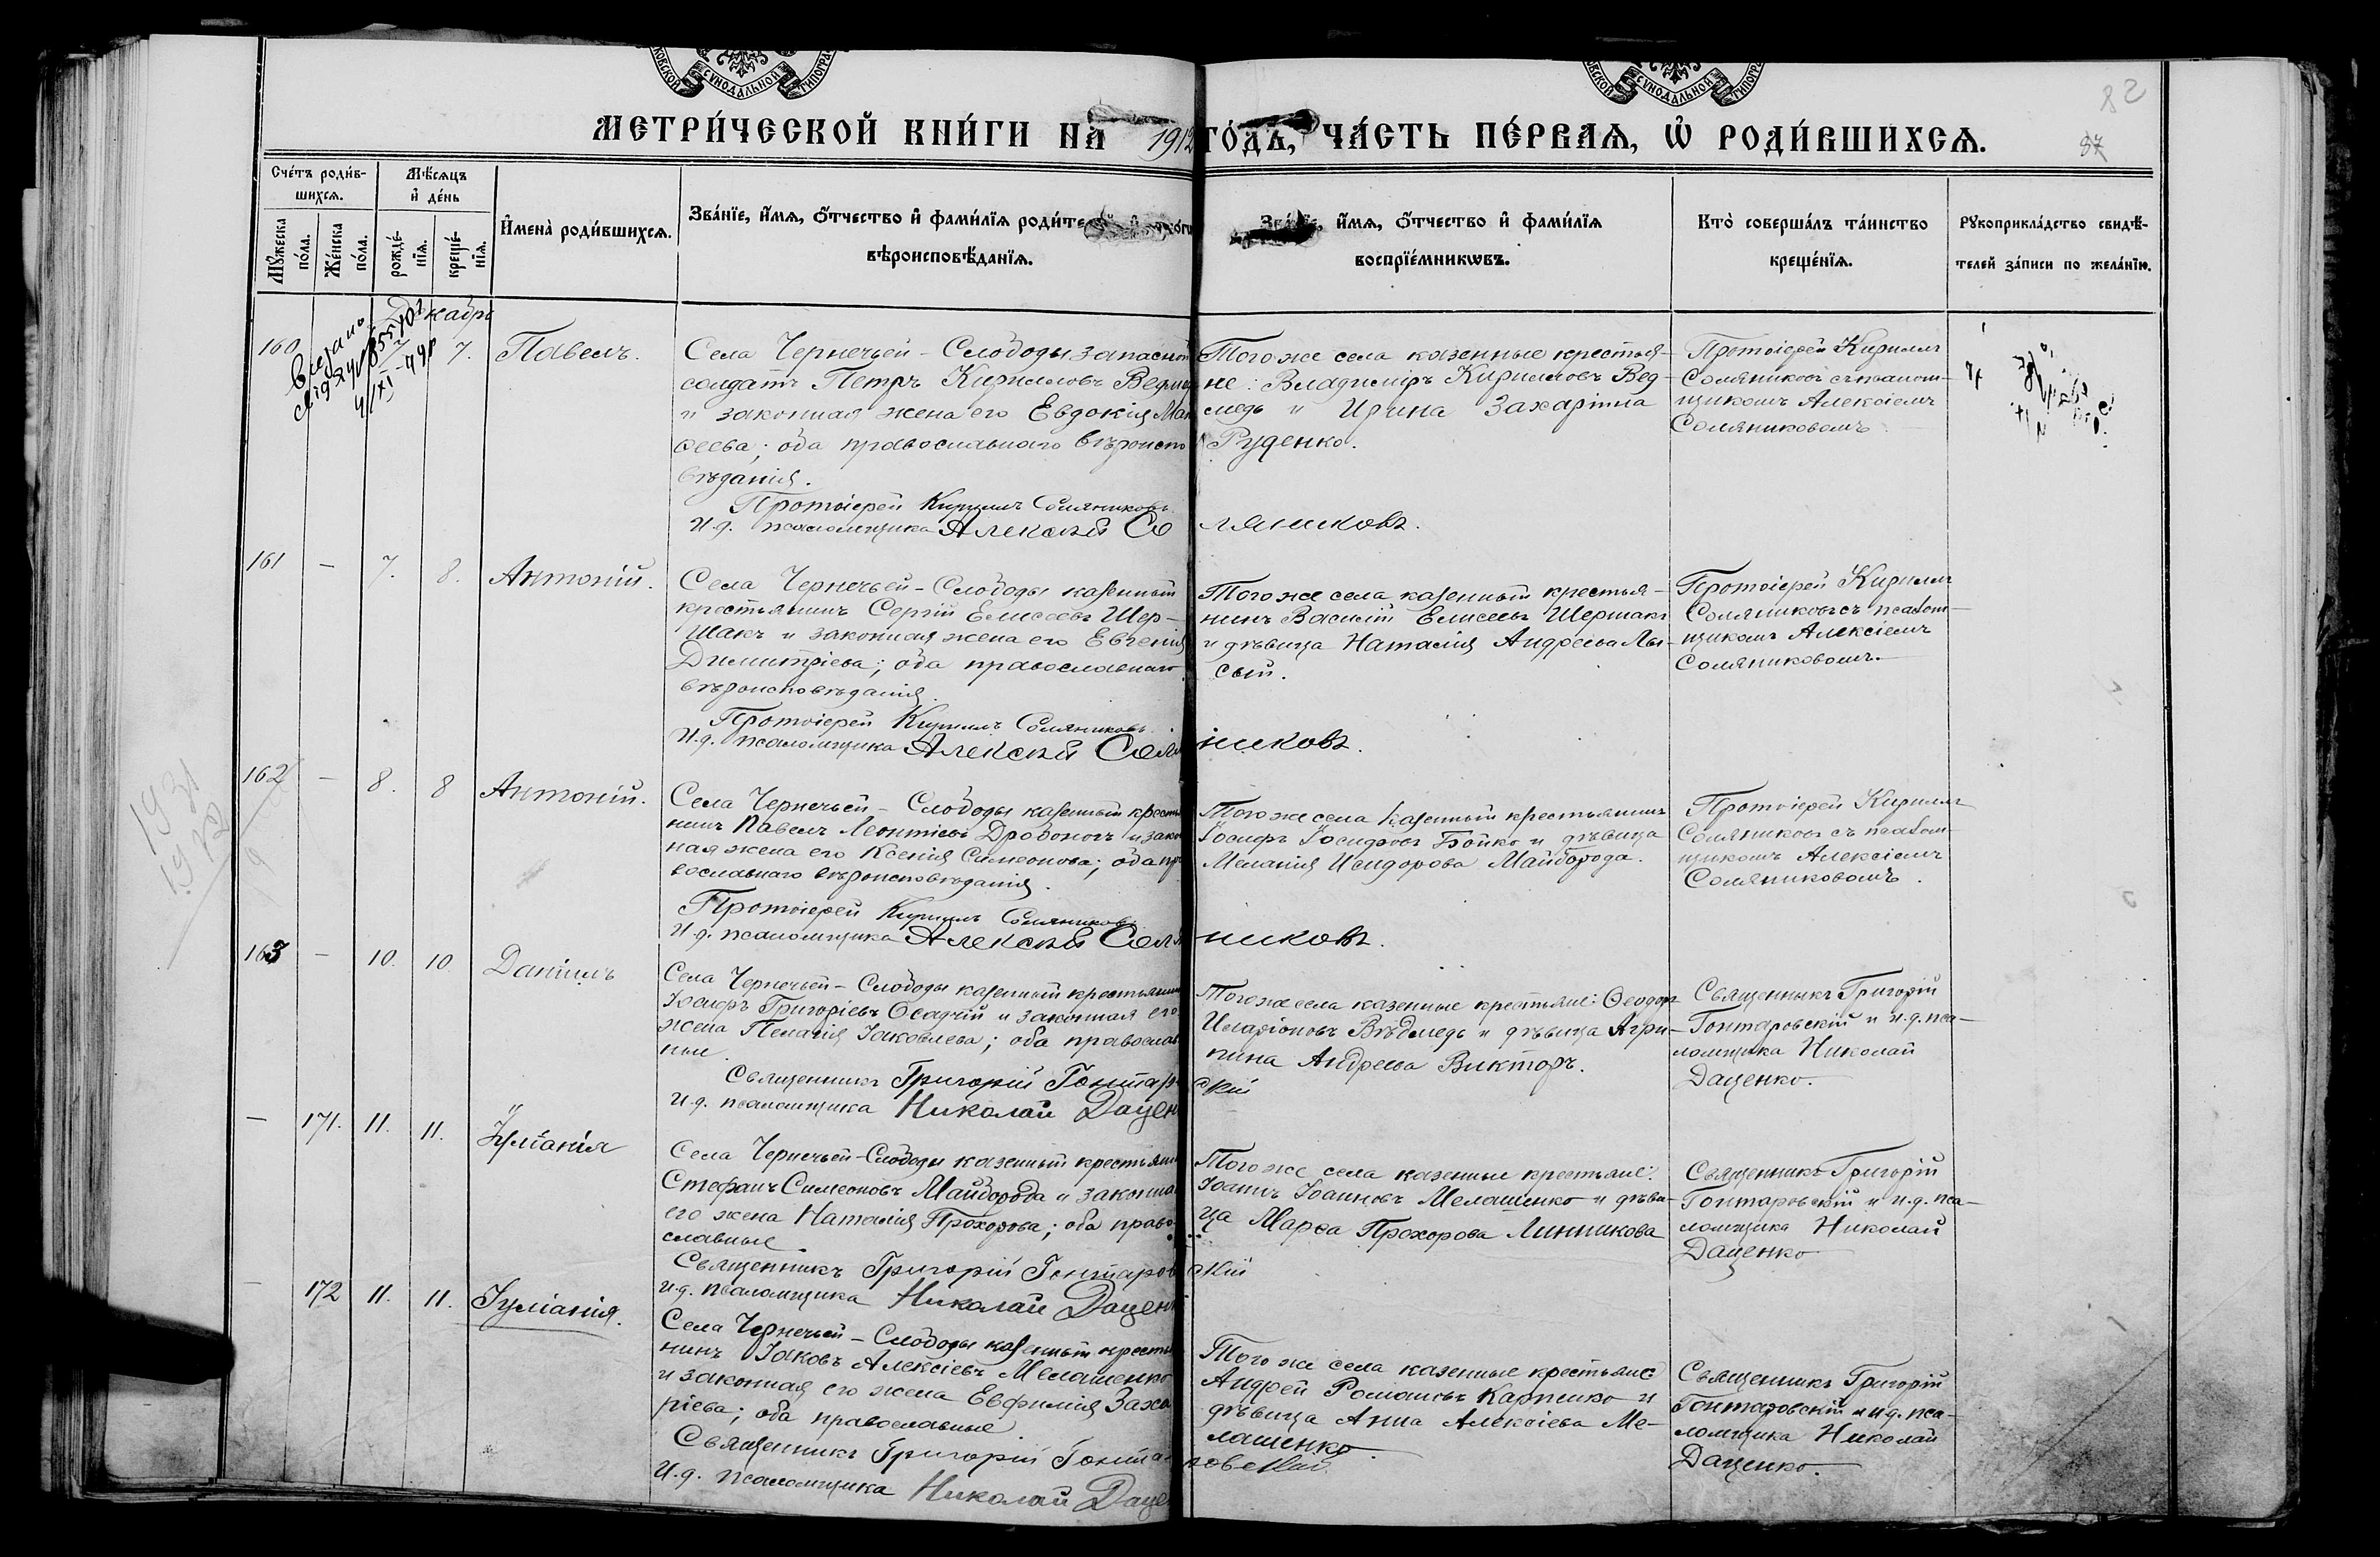 МЕТРИ́ЧЕСКОЙ КНИ́ГИ НА 1912 ГО́ДЪ, ЧА́СТЬ ПЕ́РВАЯ, Ѡ҆ РОДИ́ВШИХСЯ.
82
87
Сче́тъ роди́в-
шихся.
Мѣ́сяцъ
и҆ де́нь
Мꙋ́жеска по́ла.
Же́нска по́ла.
рожде́-
нїя.
креще́-
нїя.
И҆мена̀ роди́вшихся.
Зва́нїе, и҆́мя, ѻ҆́тчество и҆ фами́лїя роди́те
вѣроисповѣ́данїя.
и҆́мя, ѻ҆́тчество и҆ фами́лїя
воспрїе́мникѡвъ.
Кто̀ соверша́лъ та́инство
креще́нїя.
Рꙋкоприкла́дство свидѣ́-
телей за́писи по жела́нїю.
Декабрь
160
7.
Павелъ.
Села Чернечьей-Слободы запасной
солдатъ Петръ Кирилловъ
и законная жена его Евдокія
ѳеева; оба православнаго вѣроиспо
вѣданія.
Протоіерей Кириллъ Соляниковъ
И.д. псаломщика Алексѣй Со
ляниковъ.
Того же села казенные крестья-
не: Владиміръ Кирилловъ Вед-
медь и Ирина Захаріина
Руденко.
Протоіерей Кириллъ
Соляниковъ съ псалом-
щикомъ Алексіемъ
Соляниковомъ
161 — 7. 8. Антоній.
Села Чернечьей-Слободы казенный
крестьянинъ Сергій Елисеевъ Шер-
шакъ и законная жена его Евгенія
Димитріева; оба православнаго
вѣроисповѣданія.
Протоіерей Кириллъ Соляниковъ
И.д. псаломщика Алексѣй Соля
никовъ.
Того же села казенный крестья-
нинъ Василій Елисеевъ Шершакъ
и дѣвица Наталія Андреева Лы-
сый.
Протоіерей Кириллъ
Соляниковъ съ псалом-
щикомъ Алексіемъ
Соляниковомъ.
162 — 8. 8 Антоній.
Села Чернечьей-Слободы казенный кресть
нинъ Павелъ Леонтіевъ Дробоногъ и закон
ная жена его Ксенія Симеонова; оба пра
вославнаго вѣроисповѣданія.
Протоіерей Кириллъ Соляниковъ
И.д. псаломщика Алексѣй Соля
никовъ.
Того же села казенный крестьянинъ
Іосифъ Іосифовъ Бойко и дѣвица
Меланія Исидорова Майборода.
Протоіерей Кириллъ
Соляниковъ съ псалом-
щикомъ Алексіемъ
Соляниковомъ.
163 — 10. 10 Даніилъ
Села Чернечьей-Слободы казенный крестьянин
Іосифъ Григоріевъ Осадчій и законная его
жена Пелагія Іаковлева; оба православ
ные.
Священникъ Григорій Гонтаров
скій
И.д. псаломщика Николай Дацен
Того же села казенные крестьяне: Ѳеодоръ
Иларіоновъ Вѣдмедь и дѣвица Агри-
пина Андреева Викторъ.
Священникъ Григорій
Гонтаровскій и и.д. пса-
ломщика Николай
Даценко.
— 171. 11. 11. Іуліанія
Села Чернечьей-Слободы казенный крестьянин
Стефанъ Симеоновъ Майборода и законная
его жена Наталія Прохорова; оба право-
славные
Священникъ Григорій Гонтаров
скій
И.д. псаломщика Николай Даценк
Того же села казенные крестьяне:
Іоаннъ Іоанновъ Мелашенко и дѣви-
ца Марѳа Прохорова Линникова
Священникъ Григорій
Гонтаровскій и и.д. пса-
ломщика Николай
Даценко
— 172 11. 11. Іуліанія.
Села Чернечьей-Слободы казенный крестья
нинъ Іаковъ Алексіевъ Мелашенко
и законная его жена Евфимія Заха
ріева; оба православные
Священникъ Григорій Гонта
ровскій.
И.д. псаломщика Николай Даце
Того же села казенные крестьяне
Андрей Романовъ Карпенко и
дѣвица Анна Алексіева Ме-
лашенко.
Священникъ Григорій
Гонтаровскій и и.д. пса-
ломщика Николай
Даценко.